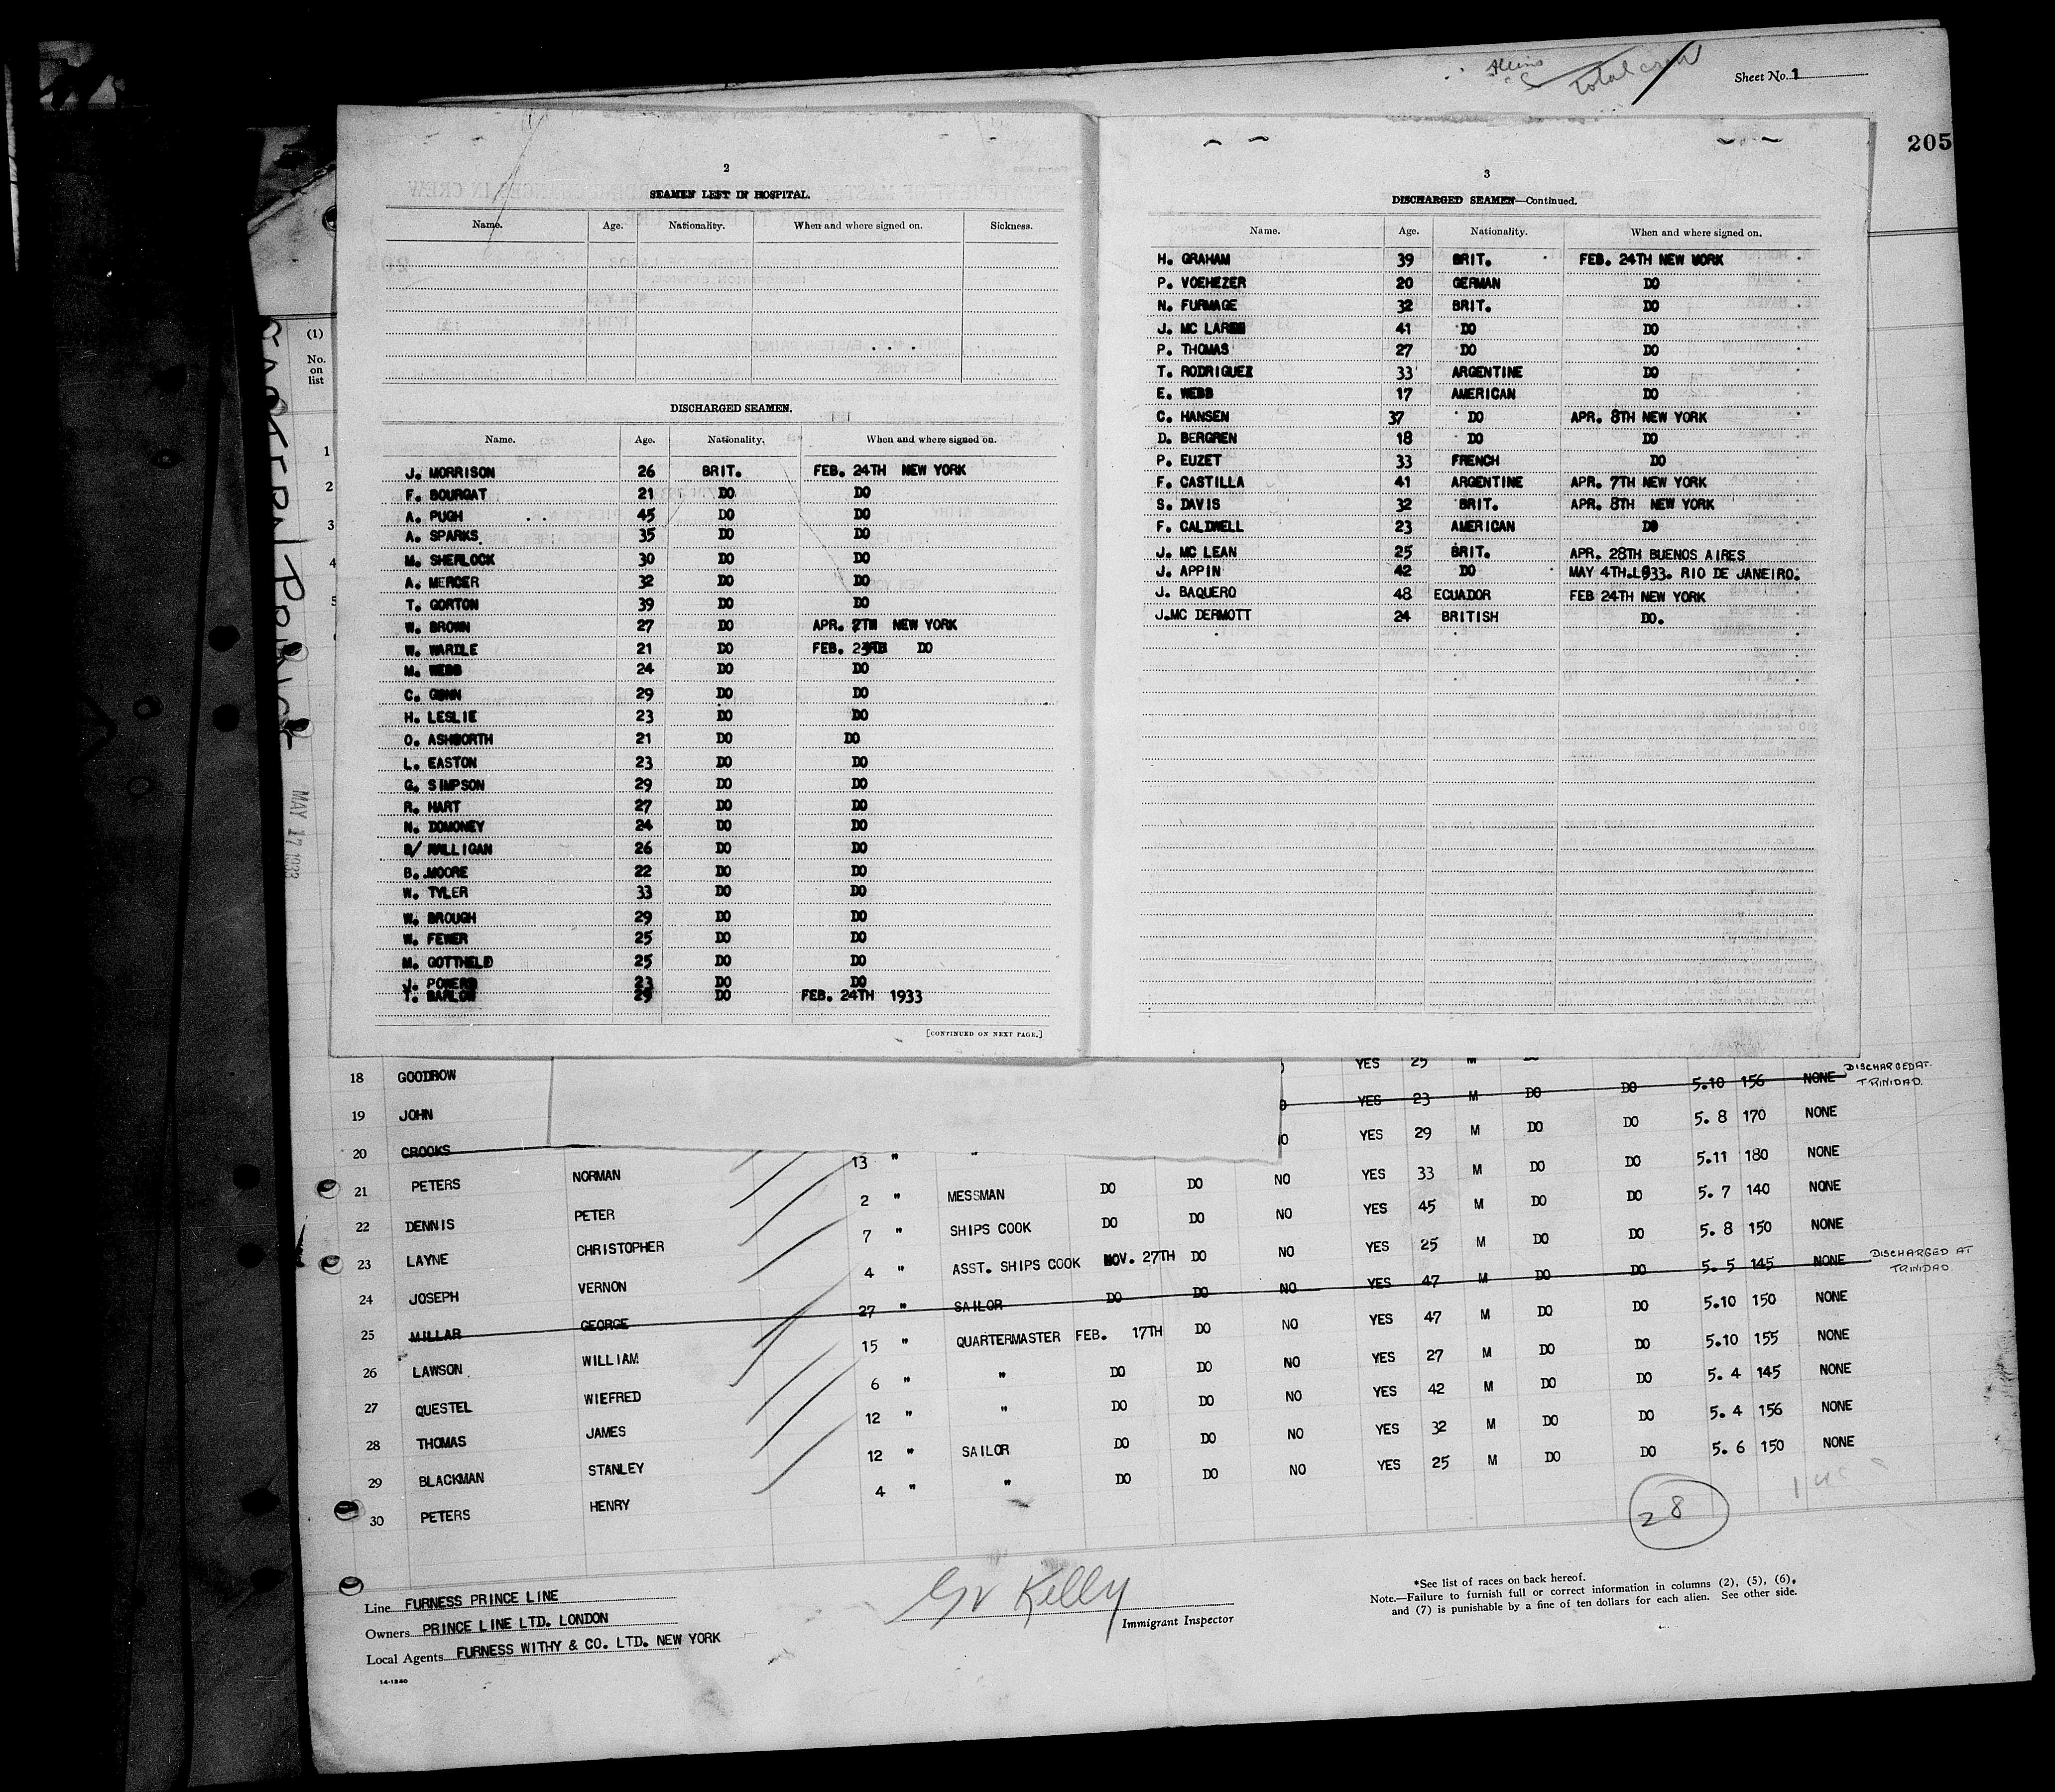 Sheet No. 1
205
(1)
No.
on
list
1
2
3
4
5
MAY 17 1933
2
SEAMEN LEFT IN HOSPITAL.
Name. Age. Nationality. When and where signed on. Sickness.
DISCHARGED SEAMEN.
Name. Age. Nationality. When and where signed on.
J. MORRISON 26 BRIT. FEB. 24TH NEW YORK
F. BOURGAT 21 DO DO
A. PUGH 45 DO DO
A. SPARKS 35 DO DO
M. SHERLOCK 30 DO DO
A. MERCER 32 DO DO
T. GORTON 39 DO DO
W. BROWN 27 DO APR. 7TH NEW YORK
W. WARDLE 21 DO FEB. DO
M. WEBB 24 DO DO
C. GUNN 29 DO DO
H. LESLIE 23 DO DO
O. ASHWORTH 21 DO DO
L. EASTON 23 DO DO
G. SIMPSON 29 DO DO
R. HART 27 DO DO
N. DOMONEY 24 DO DO
26 DO DO
B. MOORE 22 DO DO
W. TYLER 33 DO DO
W. BROUGH 29 DO DO
W. FEWER 25 DO DO
M. GOTTHELD 25 DO DO
J. POWERS 23 DO DO
T. BARLOW 29 DO FEB. 24TH 1933
[CONTINUED ON NEXT PAGE.]
3
DISCHARGED SEAMEN—Continued.
Name. Age. Nationality. When and where signed on.
H. GRAHAM 39 BRIT. FEB. 24TH NEW YORK
P. VOEHEZER 20 GERMAN DO
N. FURMAGE 32 BRIT. DO
J. MC LAREN 41 DO DO
P. THOMAS 27 DO DO
T. RODRIGUEZ 33 ARGENTINE DO
E. WEBB 17 AMERICAN DO
C. HANSEN 37 DO APR. 8TH NEW YORK
D. BERGREN 18 DO DO
P. EUZET 33 FRENCH DO
F. CASTILLA 41 ARGENTINE APR. 7TH NEW YORK
S. DAVIS 32 BRIT. APR. 8TH NEW YORK
F. CALDWELL 23 AMERICAN DO
J. MC LEAN 25 BRIT. APR. 28TH BUENOS AIRES
J. APPIN 42 DO MAY 4TH.L933. RIO DE JANEIRO.
J. BAQUERO 48 ECUADOR FEB 24TH NEW YORK
J.MC DERMOTT 24 BRITISH DO.
18 GOODROW YES 25 M
19 JOHN YES 23 M DO DO 5.10 156 NONE DISCHARGED AT TRINIDAD.
20 CROOKS YES 29 M DO DO 5. 8 170 NONE
21 PETERS NORMAN 13 " " YES 33 M DO DO 5.11 180 NONE
22 DENNIS PETER 2 " MESSMAN DO DO NO YES 45 M DO DO 5. 7 140 NONE
23 LAYNE CHRISTOPHER 7 " SHIPS COOK DO DO NO YES 25 M DO DO 5. 8 150 NONE
24 JOSEPH VERNON 4 " ASST. SHIPS COOK NOV. 27TH DO NO YES 47 M DO DO 5. 5 145 NONE DISCHARGED AT TRINIDAD
25 MILLAR GEORGE 27 " SAILOR DO DO NO YES 47 M DO DO 5.10 150 NONE
26 LAWSON WILLIAM 15 " QUARTERMASTER FEB. 17TH DO NO YES 27 M DO DO 5.10 155 NONE
27 QUESTEL WIEFRED 6 " " DO DO NO YES 42 M DO DO 5. 4 145 NONE
28 THOMAS JAMES 12 " " DO DO NO YES 32 M DO DO 5. 4 156 NONE
29 BLACKMAN STANLEY 12 " SAILOR DO DO NO YES 25 M DO DO 5. 6 150 NONE
30 PETERS HENRY 4 " " DO DO NO
28
Line FURNESS PRINCE LINE
Owners PRINCE LINE LTD. LONDON
Local Agents FURNESS WITHY & CO. LTD. NEW YORK
14-1240
Kelly
Immigrant Inspector
*See list of races on back hereof.
Note.—Failure to furnish full or correct information in columns (2), (5), (6),
and (7) is punishable by a fine of ten dollars for each alien. See other side.